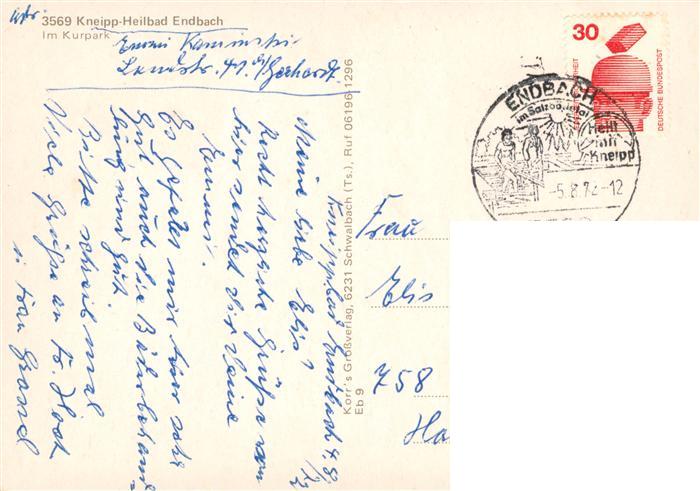 3569 Kneipp-Heilbad Endbach
Im Kurpark
Emmi Kaminski
Landstr. 41 b/Gerhardt
Kneippbad Endbach 4.8.72
Meine liebe Elis!
Recht herzliche Grüße von
hier sendet dir deine
Emmi.
Es gefällt mir hier sehr
gut auch die Bäderbehand-
lung sind gut
Bitte schreib mal
Viele Grüße an Fr.
u Frau
Korr's Großverlag, 6231 Schwalbach (Ts.), Ruf 06196-1296
Eb 9
30
DEUTSCHE BUNDESPOST
ENDBACH
im Salzbödetal
Heilt
mit
Kneipp
-5.8.72-12
Frau
Elis
758